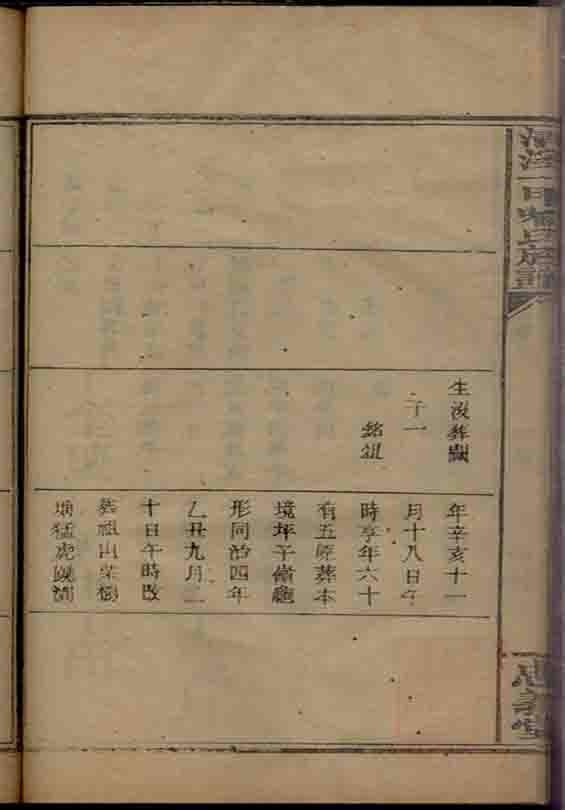 氏族譜
忠義堂
生沒葬闕
子一
銘組
年辛亥十一
月十八日午
時享年六十
有五原葬本
境坪子龜
形同治四年
乙丑九月二
十日午時改
葬祖山樹
猛虎跳澗